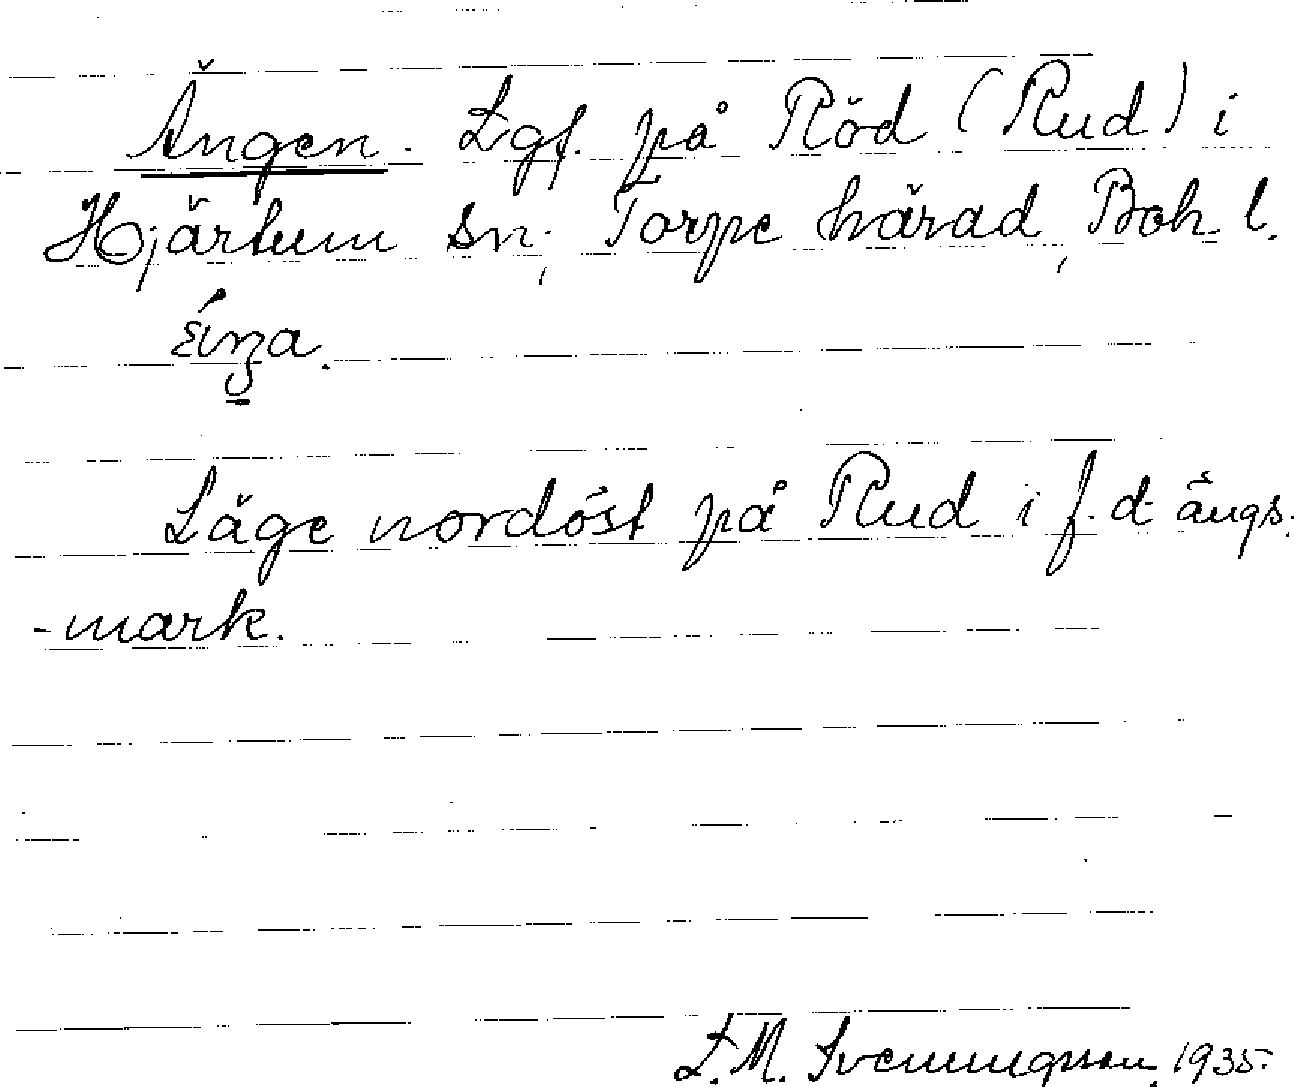 Ängen. Lgf. på Röd (Rud) i
Hjärtum sn; Torpe härad, Boh. l.
Läge nordöst på Rud i f. d. ängs-
-mark.
1935.